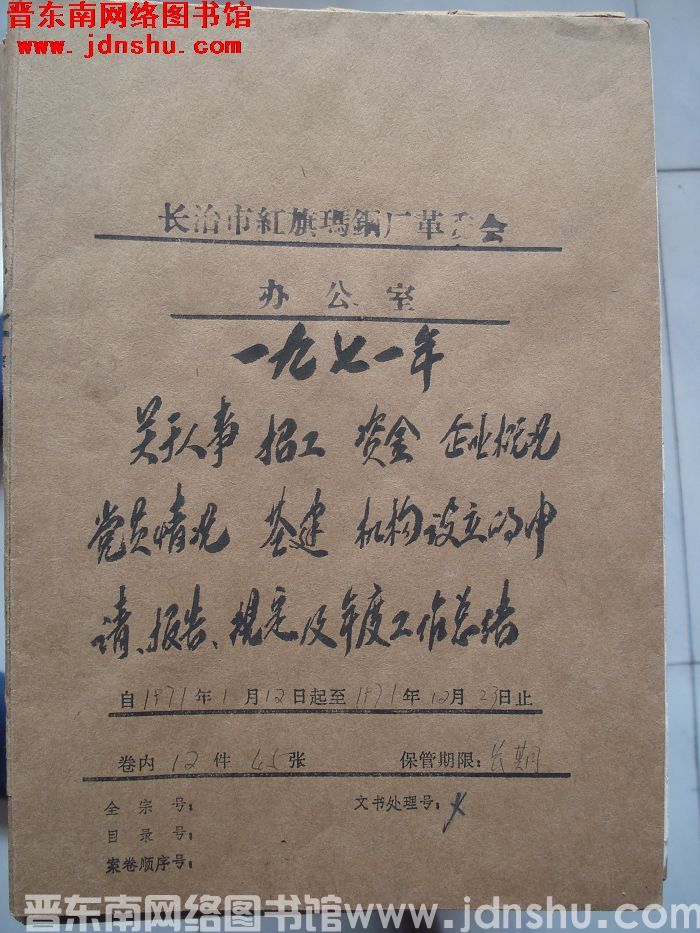 晋东南网络图书馆
www.jdnshu.com
长治市紅旗瑪鋼厂革委会
办公室
一九七一年
关于人事 招工 资金 企业概况
党员情况 基建 机构设立的申
请、报告、规定及年度工作总结
自1971年1月12日起至1971年12月23日止
卷内12件45张 保管期限：长期
全宗号： 文书处理号：
目录号：
案卷顺序号：
晋东南网络图书馆 www.jdnshu.com